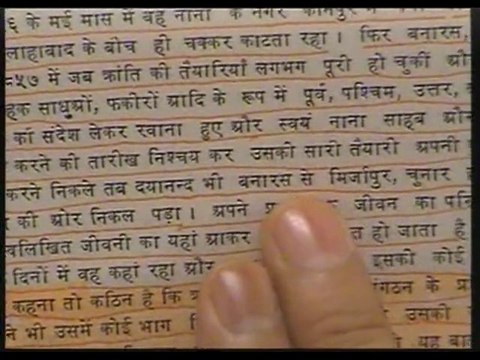 ६ के मई मास में वह नाना के नगर कानपुर में
लाहाबाद के बीच ही चक्कर काटता रहा । फिर बनारस,
८५७ में जब क्रांति की तैयारियां लगभग पूरी हो चुकीं और
हक साधुओं, फकीरों आदि के रूप में पूर्व, पश्चिम, उत्तर,
का संदेश लेकर रवाना हुए और स्वयं नाना साहब और
करने की तारीख निश्चय कर उसकी सारी तैयारी अपनी
करने निकले तब दयानन्द भी बनारस से मिर्जापुर, चुनार
की ओर निकल पड़ा । अपने जीवन का
वलिखित जीवनी का यहां आकर त हो जाता है
दिनों में वह कहां रहा और इसकी कोई
कहना तो कठिन है कि गठन के
ने भी उसमें कोई भाग उसकी
यह बा